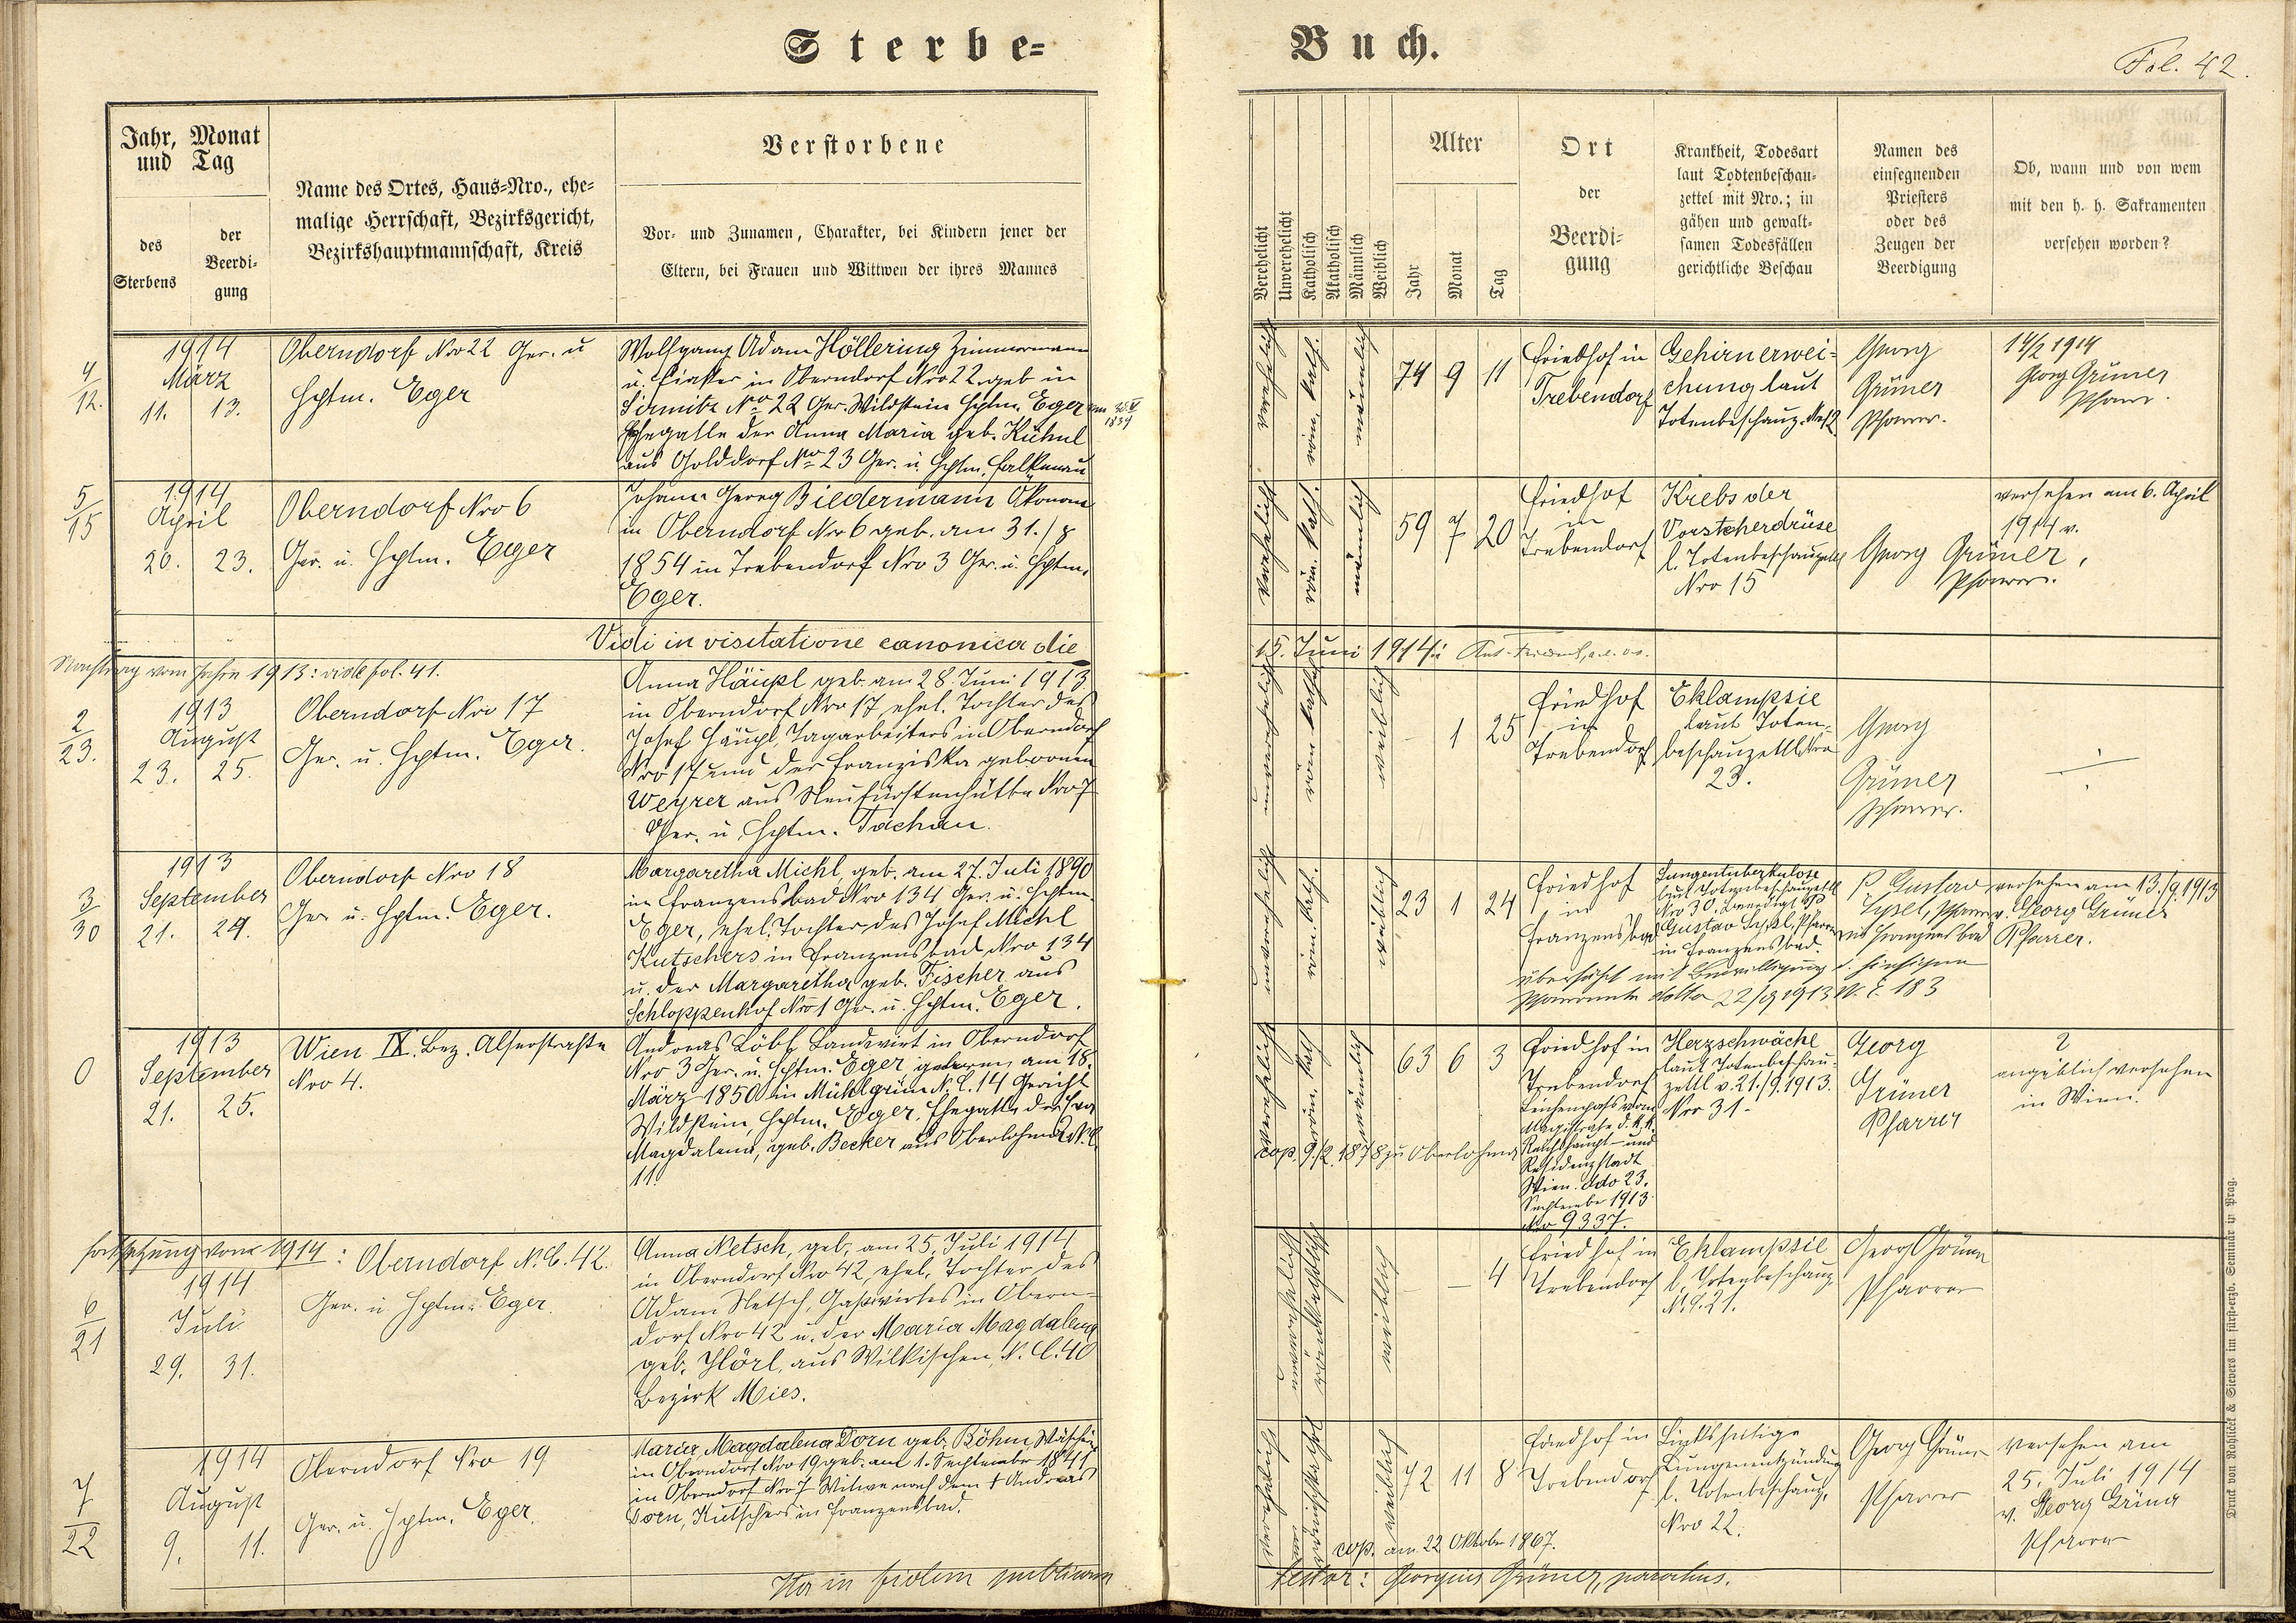 Sterbe=
Buch.
Fol. 42.
Jahr, Monat
und Tag
des
Sterbens
der
Beerdi-
gung
Name des Ortes, Haus=Nro., ehe=
malige Herrschaft, Bezirksgericht,
Bezirkshauptmannschaft, Kreis
Verstorbene
Vor- und Zunamen, Charakter, bei Kindern jener der
Eltern, bei Frauen und Wittwen der ihres Mannes
Verehelicht
Unverehelicht
Katholisch
Akatholisch
Männlich
Weiblich
Alter
Jahr
Monat
Tag
Ort
der
Beerdi-
gung
Krankheit, Todesart
laut Todtenbeschau-
zettel mit Nro.; in
gähen und gewalt-
samen Todesfällen
gerichtliche Beschau
Namen des
einsegnenden
Priesters
oder des
Zeugen der
Beerdigung
Ob, wann und von wem
mit den h. h. Sakramenten
versehen worden?
4
12.
1914
März
11. 13.
Oberndorf Nro 22 Ger. u
Hptm. Eger
Wolfgang Adam Höllering Zimmermann
u. in Oberndorf Nro 22 geb in
Sirmitz No 22 Ger. Wildstein Hptm. Eger am
1839
Ehegatte der Anna Maria geb. Kühnl
aus Golddorf Nro 23 Ger. u. Hptm. Falkenau
verehelicht
röm. kath.
männlich
74 9 11
Friedhof in
Trebendorf
Gehirnerwei=
chung laut
Totenbeschauz. Nr 12
Georg
Grüner
Pfarrer.
14/2 1914
Georg Grüner
Pfarr.
5
15
1914
April
20. 23.
Oberndorf Nro 6
Ger. u. Hptm. Eger
Johann Georg Biedermann Ökonom
in Oberndorf Nro 6 geb. am 31./8
1854 in Trebendorf Nro 3 Ger. u. Hptm.
Eger.
verehelicht
röm. kath.
männlich
59 7 20
Friedhof
in
Trebendorf
Krebs der
Vorsteherdrüse
l. Totenbeschauzettl
Nro 15
Georg Grüner,
Pfarrer.
versehen am 6. April
1914 v.
Vidi in visitatione canonica die
15. Juni 1914
Nachtrag vom Jahre 1913: vide fol. 41.
2
23.
1913
August
23. 25.
Oberndorf Nro 17
Ger. u. Hptm. Eger.
Anna Häupl geb. am 28. Juni 1913
in Oberndorf Nro 17, ehel. Tochter des
Josef Häupl, Tagarbeiters in Oberndorf
Nro 17 und der Franziska geborenen
Weyrer aus Neufürstenhütte Nro 7
Ger. u. Hptm. Tachau.
unverehelicht
röm kath
weiblich
– 1 25
Friedhof
in
Trebendorf
Eklampsie
laut Toten-
beschauzettl Nro
23.
Georg
Grüner
Pfarrer.
3
30
1913
September
21. 24.
Oberndorf Nro 18
Ger u. Hptm. Eger.
Margaretha Michl, geb. am 27. Juli 1890
in Franzensbad Nro 134 Ger. u. Hptm.
Eger, ehel. Tochter des Josef Michl
Kutschers in Franzensbad Nro 134
u. der Margaretha geb. Fischer aus
Schloppenhof Nro 1 Ger. u. Hptm. Eger.
unverehelicht
röm. kath.
weiblich
23 1 24
Friedhof
in
Franzensbad
Lungentuberkulose
laut Totenbeschauzettl
Nro 30. beerdigt
Gustav Pfarrer
in Franzensbad
P Gustav
Pfarrer
aus Franzensbad
versehen am 13./9. 1913
v. Georg Grüner
Pfarrer.
überführt mit Bewilligung d. hiesigen
Pfarramtes ddto 22/9 1913 N. E. 183
0
1913
September
21. 25.
Wien IX. Bez. Alserstraße
Nro 4.
Andreas Löbl, Landwirt in Oberndorf
Nro 3 Ger. u. Hptm. Eger geboren am 18.
März 1850 in Mühlgrün N. C. 14 Gericht
Wildstein, Hptm. Eger. Ehegatte der
Magdalena, geb. Becker aus Oberlohma N. C.
11.
verehelicht
röm. kath
männlich
63 6 3
cop. 9./2. 1878 zu Oberlohma
Friedhof in
Trebendorf
Leichenpass vom
Magistrate d. k. k.
Reichshaupt- und
Residenzstadt
Wien. ddo 23.
September 1913
No 9337.
Herzschwäche
laut Totenbeschau-
zettl v. 21./9. 1913.
Nro 31-
Georg
Grüner
Pfarrer
?
angeblich versehen
in Wien.
Fortsetzung vom 1914:
6
21
1914
Juli
29. 31.
Oberndorf N. C. 42.
Ger. u Hptm. Eger.
Anna Netsch, geb. am 25. Juli 1914
in Oberndorf Nro 42, ehel. Tochter des
Adam Netsch, Gastwirtes in Obern-
dorf Nro 42 u. der Maria Magdalena
geb. Hörl, aus Wilkischen, N. C. 40
Bezirk Mies.
unverehelicht
römkatholisch
weiblich
– – 4
Friedhof in
Trebendorf
Eklampsie
l. Totenbeschauz.
N. C. 21.
Georg Grüner
Pfarrer
7
22
1914
August
9. 11.
Oberndorf Nro 19
Ger. u. Hptm. Eger.
Maria Magdalena Dorn geb. Böhm,
in Oberndorf Nro 19 geb. am 1. September 1841
in Oberndorf Nro 7 Witwe nach dem † Andreas
Dorn, Kutschers in Franzensbad.
verehelicht
weiblich
72 11 8
cop. am 22 Oktober 1867.
Friedhof in
Trebendorf
Linksseitige
Lungenentzündung
l. Totenbeschauz.
Nro 22.
Georg Grüner
Pfarrer
versehen am
25. Juli 1914
v. Georg Grüner
Pfarrer
Ita in fidem publicam
testor: Georgius Grüner, parochus.
Druck von Rohliček & Sievers im fürst-erzb. Seminär in Prag.